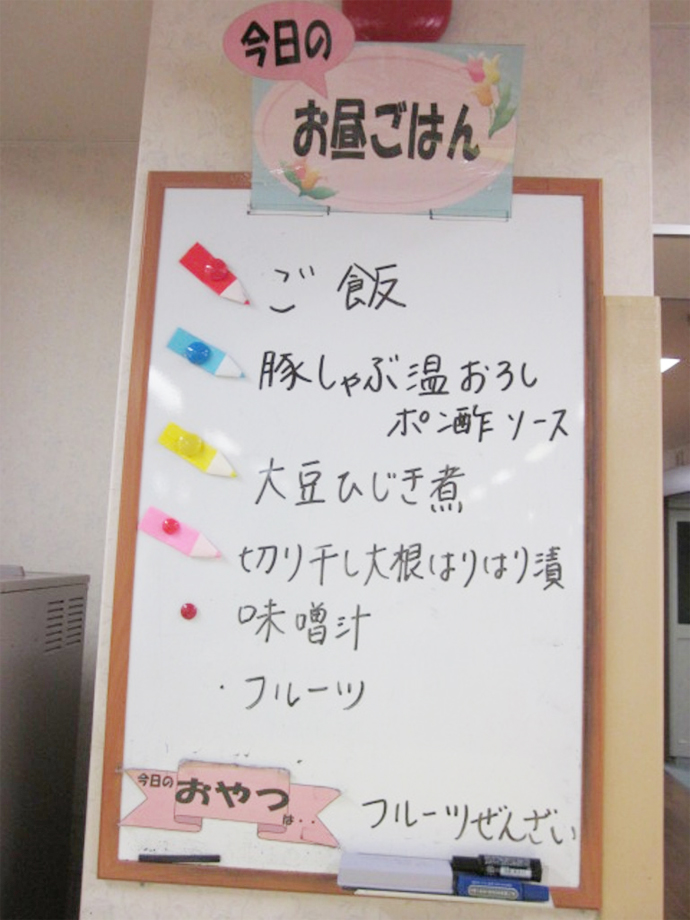 今日の
お昼ごはん
ご飯
豚しゃぶ温おろし
ポン酢ソース
大豆ひじき煮
切り干し大根はりはり漬
味噌汁
・フルーツ
今日の
おやつ
は・・
フルーツぜんざい